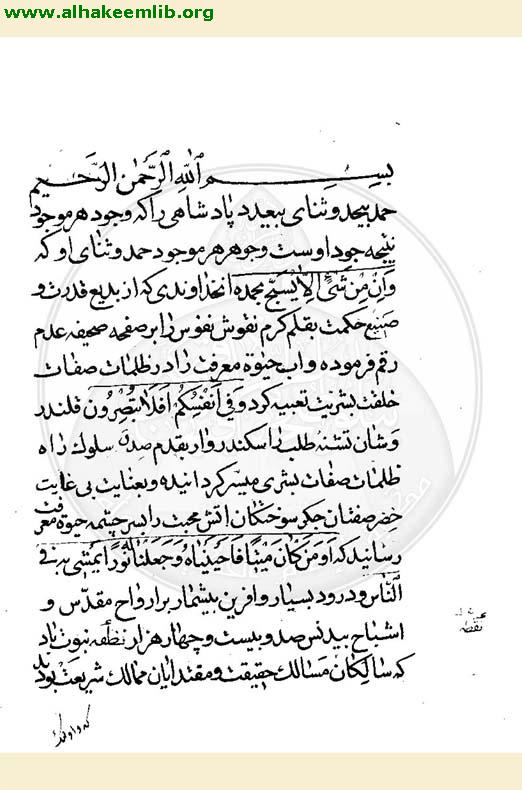 www.alhakeemlib.org
بسم الله الرحمن الرحیم
حمد بیحد و ثنای بیعدد پادشاهی را که وجود هر موجود
نتیجه جود اوست وجوهر هر موجود حمد و ثنای او که
وَاِنْ مِن شَیْءٍ اِلا یُسَبِّحُ بحمده انخداوندی که از بدیع قدرت و
صنیع حکمت بقلم کرم نقوش نفوس را بر صفحه صحیفه عدم
رقم فرموده و اب حیوة معرفت را در ظلمات صفات
خلقت بشریت تعبیه کرد وَفی اَنْفُسِکُم اَفَلا تُبْصِرُون قلندر
وشان تشنه طلب را سکندر وار بقدم صدق سلوک راه
ظلمات صفات بشری میسر کردانیده و بعنایت بی غایت
خضر صفتان جکر سوختکان اتش محبت را بسر چشمه حیوة معرفت
رسانید که اَوَمَنْ کانَ مَیْتًا فَاَحْیَیْناهُ وَجَعَلْنا لَهُ نُورًا یَمْشی بِه فی
النّاس و درود بسیار و افرین بیشمار بر ارواح مقدّس و
اشباح بیدنس صد و بیست و چهار هزار نقطه نبوت باد
که سالکان مسالک حقیقت و مقتدایان ممالک شریعت بودند
نقطه